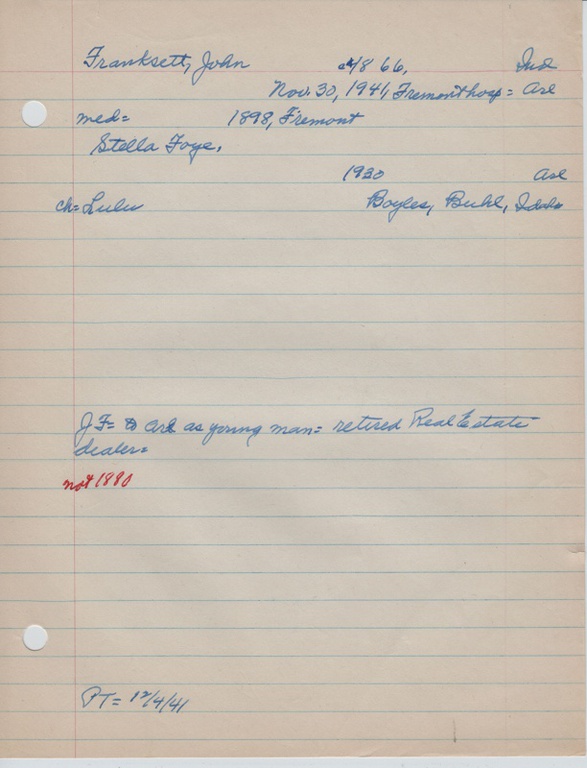 Franksett, John 1866, Ind
Nov. 30, 1941, Fremont hosp = Arl
med= 1898, Fremont
Stella Foye.
1930 Arl
ch= Lulu Boyles, Buhl, Idaho
J F= to Arl as young man= retired Real Estate
dealer=
not 1880
PT= 12/4/41